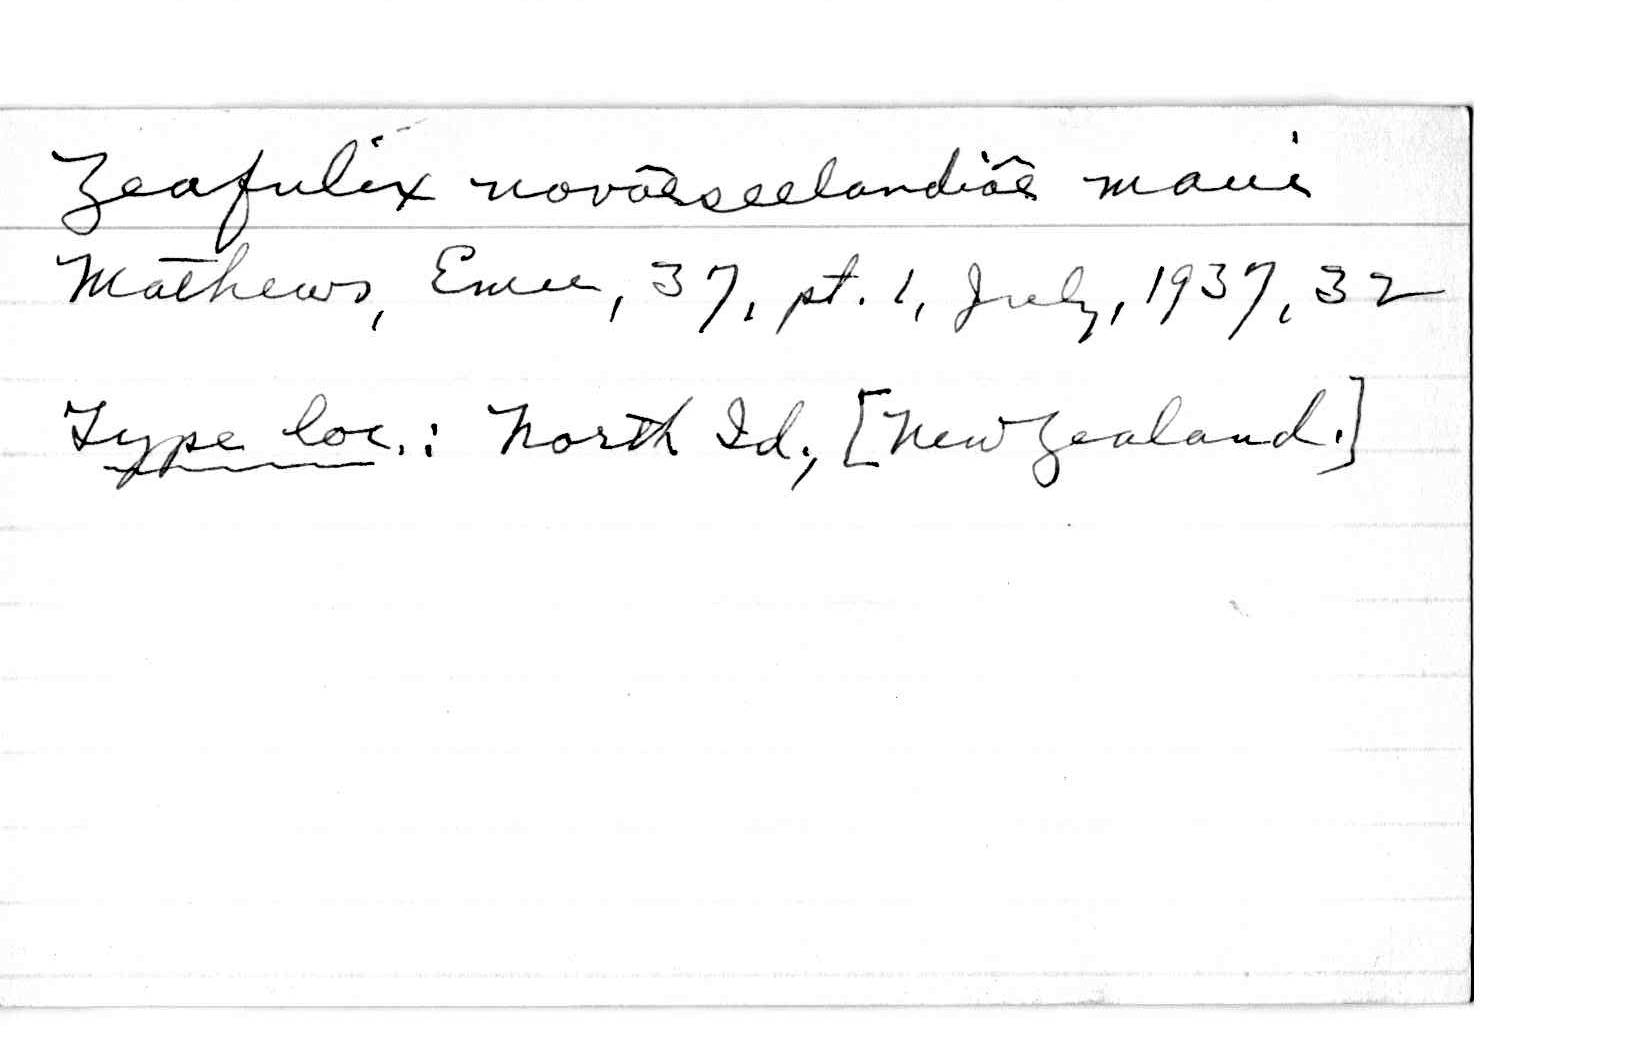 Zeafulix novâeseelandiâe maui
Mathews, Emu, 37, pt. 1, July, 1937, 32
Type loc.: North Id., [New Zealand.]